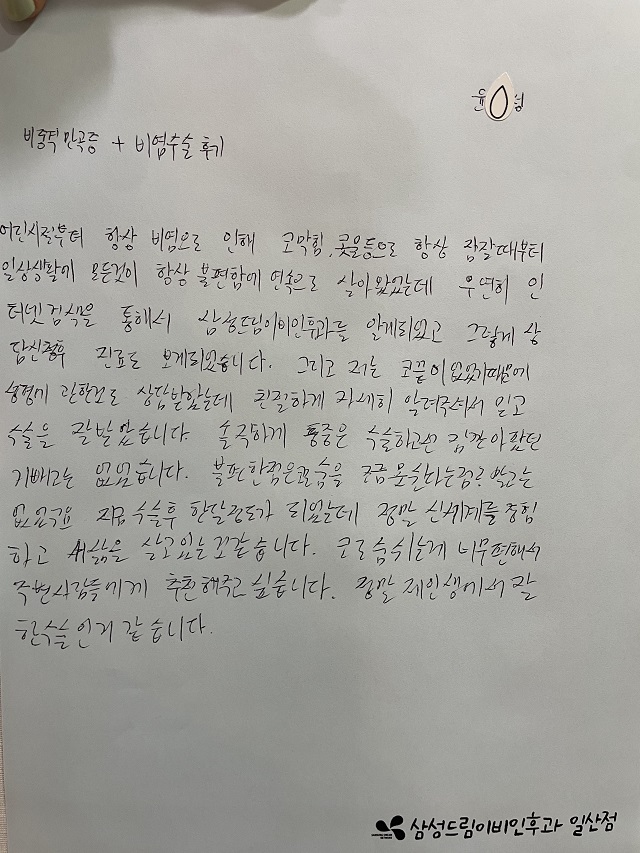 윤 형
비중격 만곡증 + 비염수술 후기
어린시절부터 항상 비염으로 인해 코막힘, 콧물등으로 항상 잠잘때부터
일상생활에 모든것이 항상 불편함에 연속으로 살아왔었는데 우연히 인
터넷 검색을 통해서 삼성드림이비인후과를 알게되었고 그렇게 상
담신청후 진료도 보게되었습니다. 그리고 저는 코끝이 없었기때문에
성형에 관한걸로 상담받았는데 친절하게 자세히 알려주셔서 믿고
수술을 잘 받았습니다. 솔직하게 통증은 수술하고선 잠깐 아팠던
기빼고는 없었습니다. 불편한점은 코숨을 조금 못쉰다는점? 빼고는
없었구요 지금 수술후 한달정도가 되었는데 정말 신세계를 경험
하고 새삶을 살고있는것같습니다. 코로 숨쉬는게 너무편해서
주변사람들에게 추천해주고 싶습니다. 정말 제인생에서 잘
한수술인거 같습니다.
삼성드림이비인후과 일산점